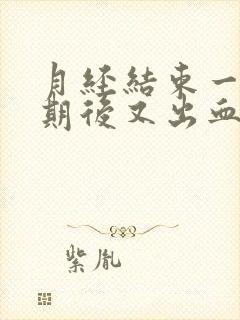 月経結束一
期後又出血
紫胤